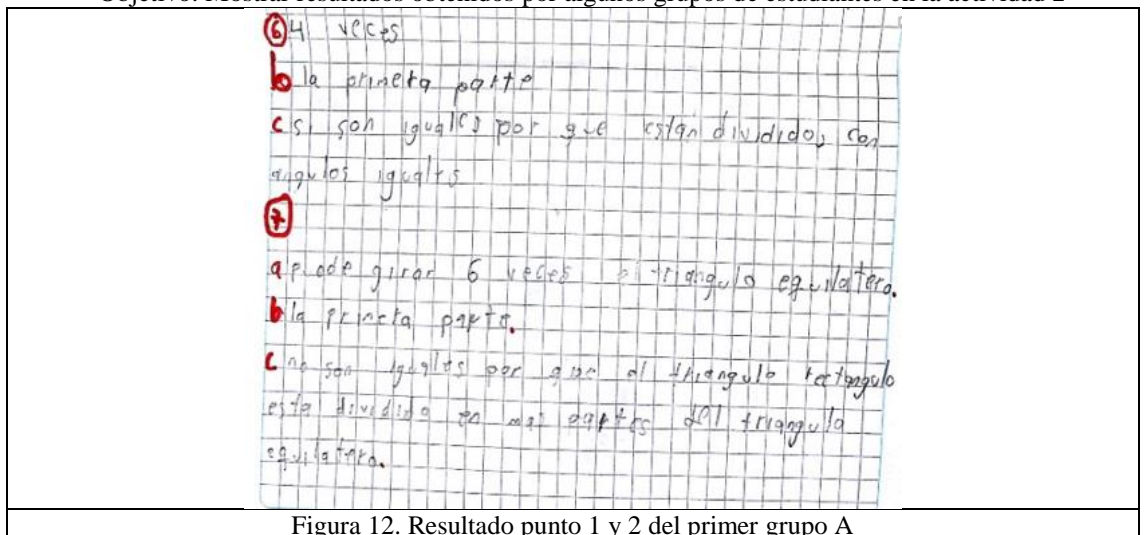 Objetivo: Mostrar resultados obtenidos por algunos grupos de estudiantes en la actividad 2
6 4 veces
b la primera parte
c si son iguales por que están divididos con
angulos iguales
7
a puede girar 6 veces el triangulo equilatero.
b la primera parte.
c no son iguales por que el triangulo rectangulo
esta dividido en mas partes del triangulo
equilatero.
Figura 12. Resultado punto 1 y 2 del primer grupo A